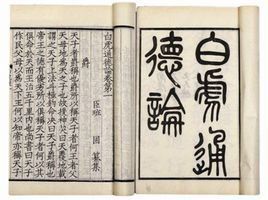 白虎通
德論
白虎通德論卷第一
臣班 固 纂集
爵
天子者爵稱也爵所以稱天子者何王者父
天母地為天之子也故援神契曰天覆地載
謂之天子上法斗極鉤命決曰天子爵稱也
帝王之德有優劣所以俱稱天子者何以其
俱命於天而主治五千里內也尚書曰天子
作民父母以為天下王何以知帝亦稱天子